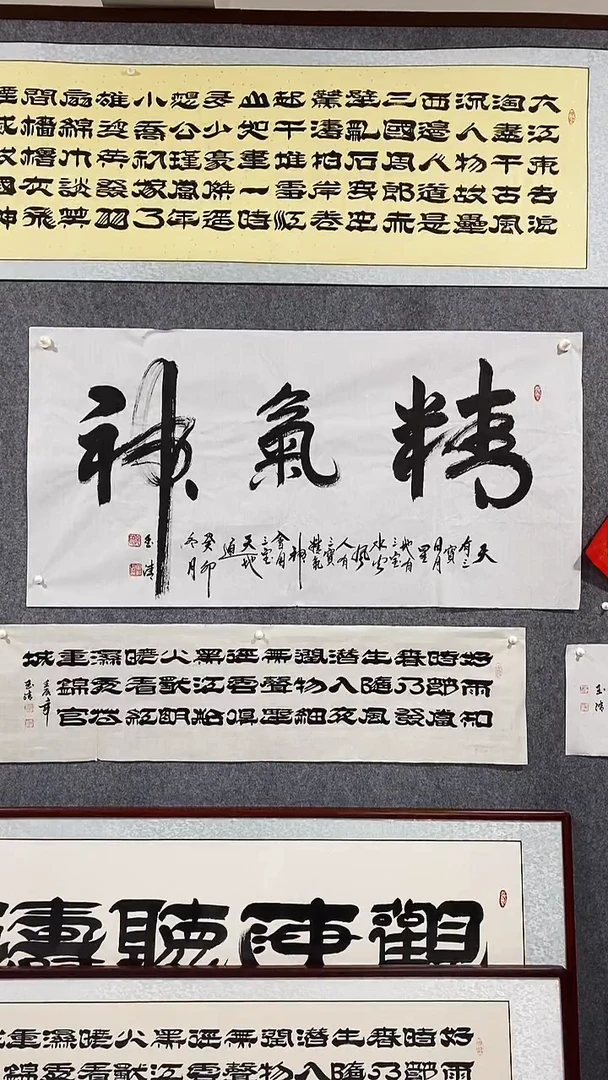 大江東去浪
淘盡千古風
流人物故壘
西邊人道是
三國周郎赤
壁亂石穿空
驚濤拍岸卷
起千堆雪江
山如畫一時
多少豪傑遥
想公瑾當年
小喬初嫁了
雄姿英發羽
扇綸巾談笑
間檣櫓灰飛
煙滅故國神
精氣神
天
有三寶
日月星
地有三宝
水火風
人有
三寶精氣
神
會用三宝
天地
通
癸卯
冬月
玉濤
好雨知
時節當
春乃發
生隨風
潜入夜
潤物細
無聲野
徑雲俱
黑江船
火獨明
曉看紅
濕處花
重錦官
城
玉濤
玉濤
觀海聽濤
好雨
時節
春乃
生隨
潜入
潤物
無聲
徑雲
黑江
火獨
曉看
濕處
重錦